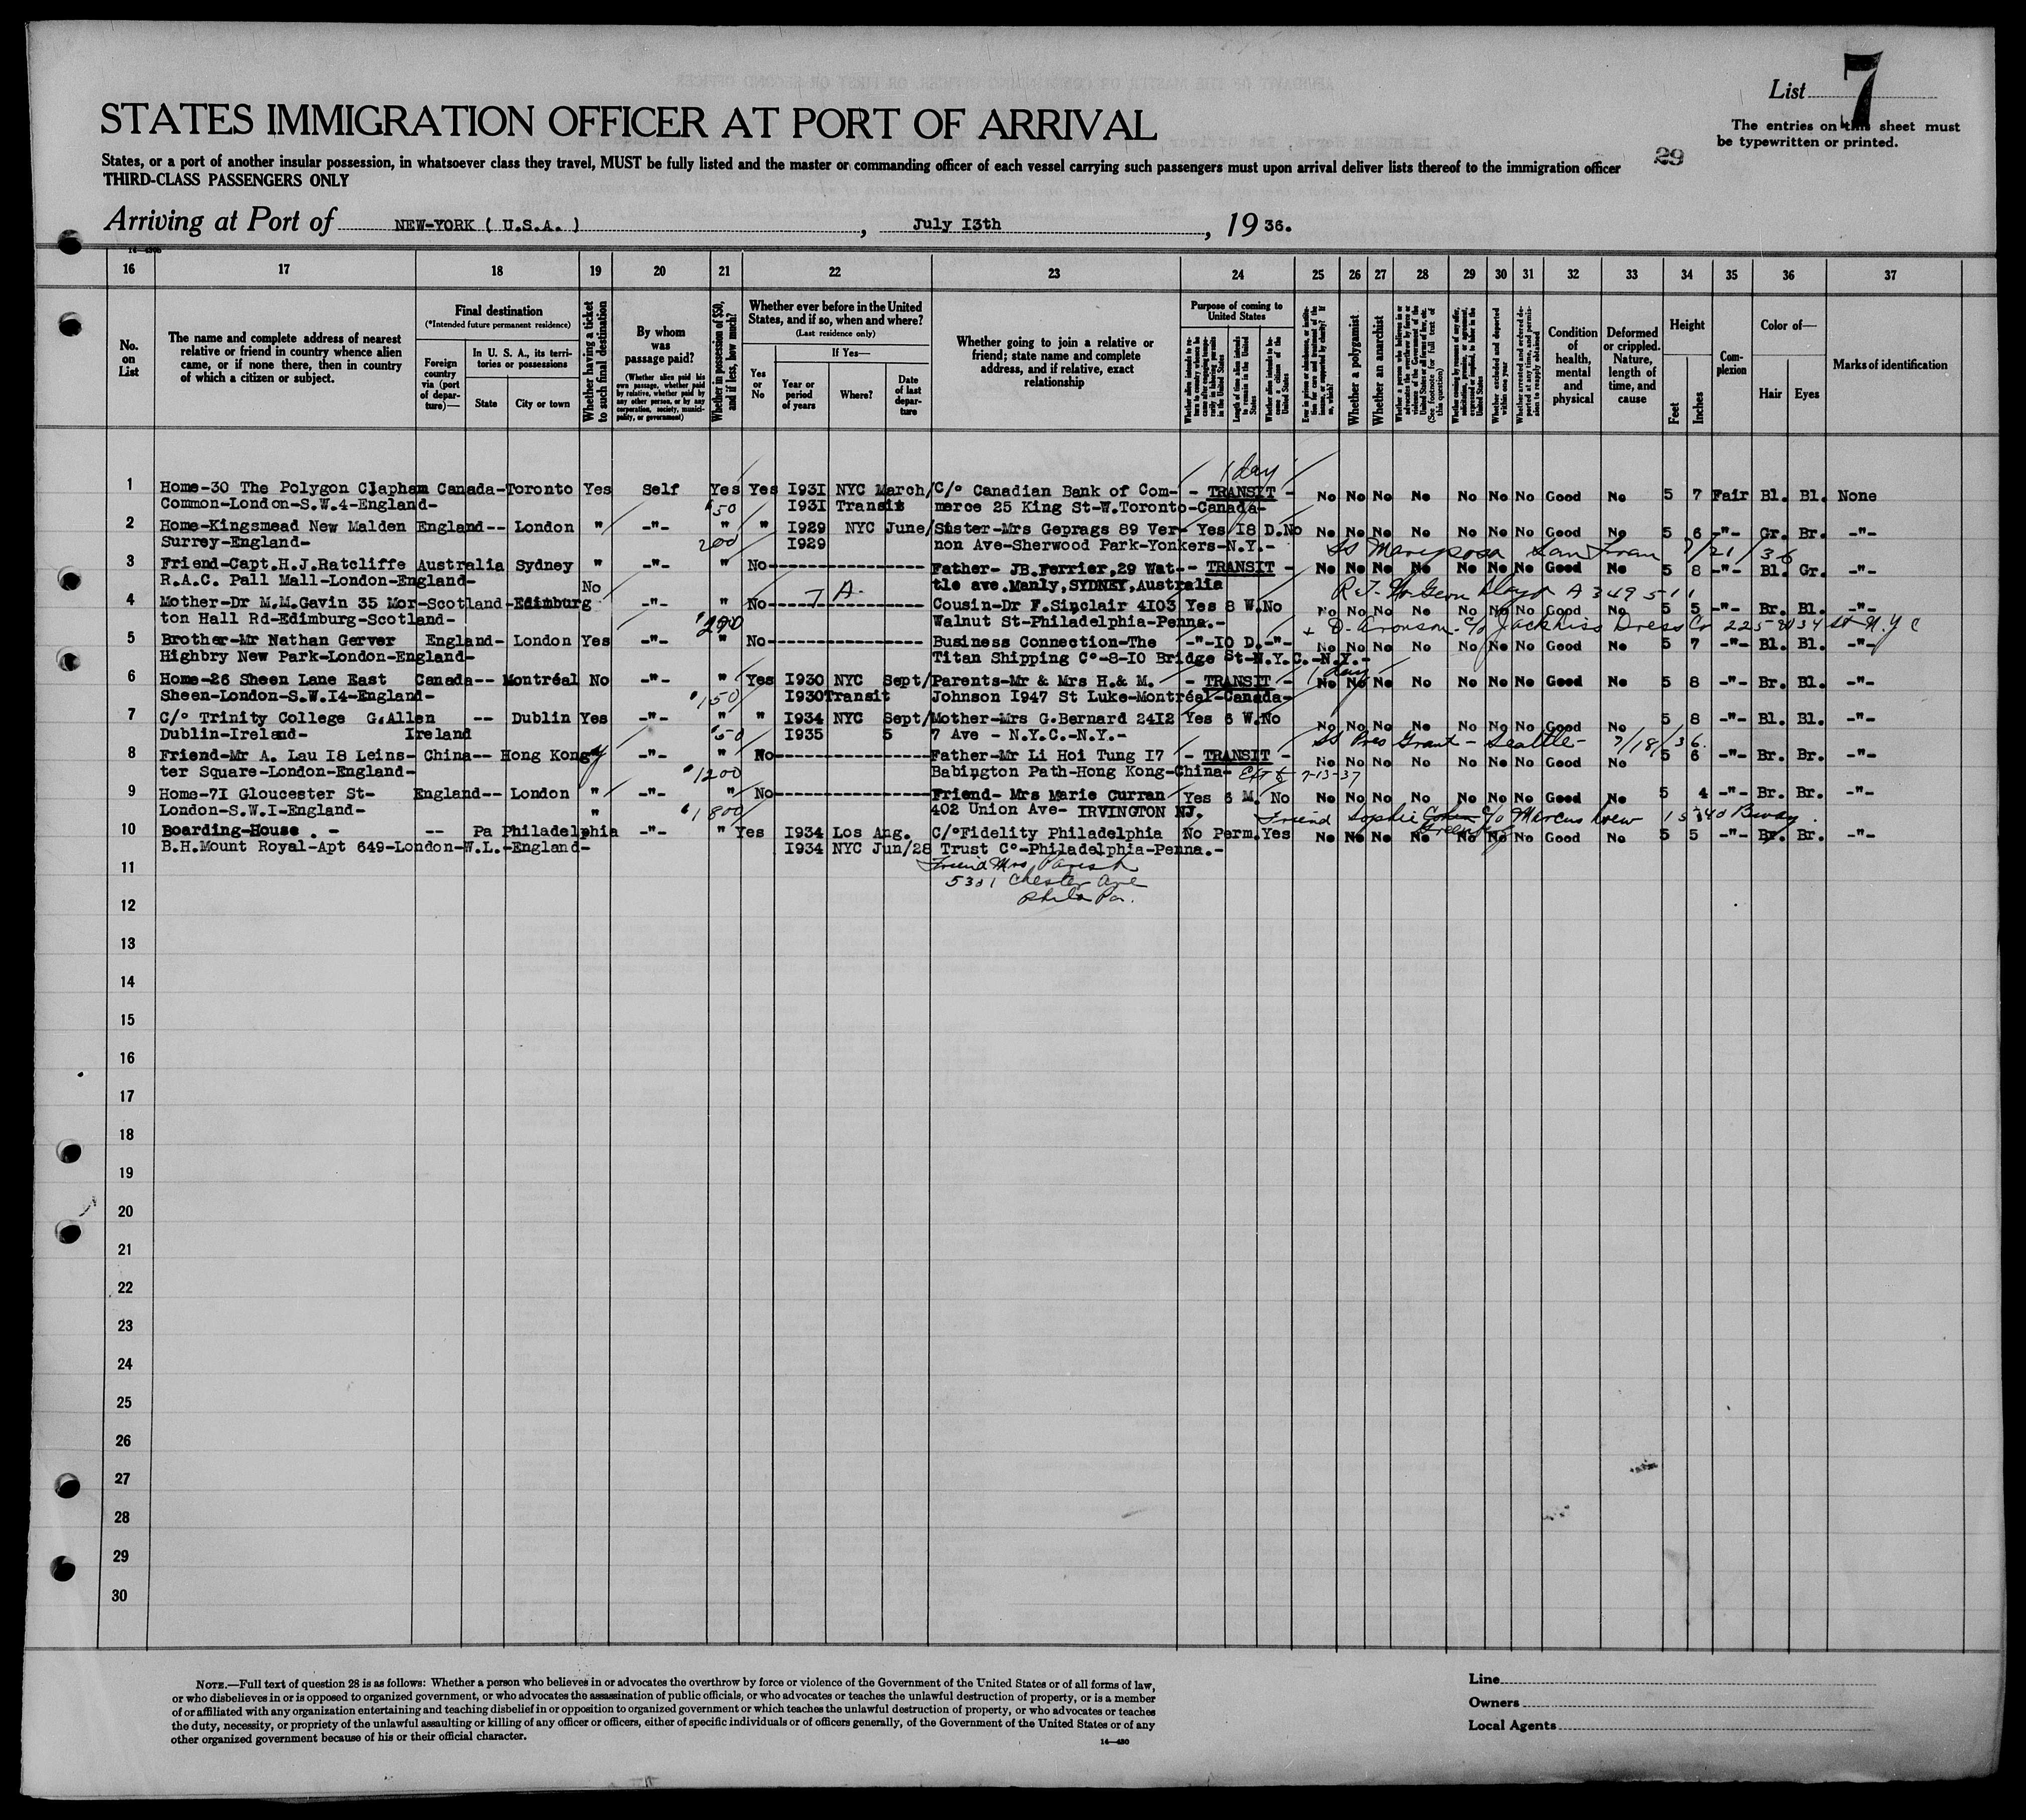 List 7
STATES IMMIGRATION OFFICER AT PORT OF ARRIVAL
The entries on this sheet must
be typewritten or printed.
States, or a port of another insular possession, in whatsoever class they travel, MUST be fully listed and the master or commanding officer of each vessel carrying such passengers must upon arrival deliver lists thereof to the immigration officer
29
THIRD-CLASS PASSENGERS ONLY
Arriving at Port of NEW-YORK ( U.S.A. ) , July I3th , 19 36.
16 17 18 19 20 21 22 23 24 25 26 27 28 29 30 31 32 33 34 35 36 37
No. on List
The name and complete address of nearest relative or friend in country whence alien came, or if none there, then in country of which a citizen or subject.
Final destination
(*Intended future permanent residence)
Foreign country via (port of departure)—
In U. S. A., its territories or possessions
State
City or town
Whether having a ticket to such final destination
By whom was passage paid?
(Whether alien paid his own passage, whether paid by relative, whether paid by any other person, or by any corporation, society, municipality, or government)
Whether in possession of $50, and if less, how much?
Whether ever before in the United States, and if so, when and where?
(Last residence only)
Yes or No
If Yes—
Year or period of years
Where?
Date of last departure
Whether going to join a relative or friend; state name and complete address, and if relative, exact relationship
Purpose of coming to United States
Length of time alien intends to remain in the United States
Whether alien intends to become a citizen of the United States
Whether a polygamist
Whether an anarchist
(See footnote for full text of this question)
Whether excluded and deported within one year
Condition of health, mental and physical
Deformed or crippled. Nature, length of time, and cause
Height
Feet
Inches
Complexion
Color of—
Hair
Eyes
Marks of identification
1 day
1 Home-30 The Polygon Clapham Canada-Toronto Yes Self Yes Yes I93I NYC March/ C/o Canadian Bank of Com- - TRANSIT - No No No No No No No Good No 5 7 Fair Bl. Bl. None
Common-London-S.W.4-England- $50 I93I Transit merce 25 King St-W.Toronto-Canada-
2 Home-Kingsmead New Malden England-- London " -"- " " I929 NYC June/ Sister-Mrs Geprags 89 Ver- Yes I8 D.No No No No No No No No Good No 5 6 -"- Gr. Br. -"-
Surrey-England- 200 I929 non Ave-Sherwood Park-Yonkers-N.Y.- SS Mariposa San Fran 7/21/36
3 Friend-Capt.H.J.Ratcliffe Australia Sydney " -"- " No-------- Father- JB.Ferrier,29 Wat- - TRANSIT - No No No No No No No Good No 5 8 -"- Bl. Gr. -"-
R.A.C. Pall Mall-London-England- No tle ave.Manly,SYDNEY,Australia
4 Mother-Dr M.M.Gavin 35 Mor-Scotland-Edimburg -"- " No-------- Cousin-Dr F.Sinclair 4I03 Yes 8 W.No No No No No No No No Good No 5 5 -"- Br. Bl. -"-
ton Hall Rd-Edimburg-Scotland- $200 Walnut St-Philadelphia-Penna.- D. Aronson c/o Dress Co 225 W 34 St N.Y C
5 Brother-Mr Nathan Gerver England- London Yes -"- " No-------- Business Connection-The -"-IO D.-"- No No No No No No No Good No 5 7 -"- Bl. Bl. -"-
Highbry New Park-London-England- Titan Shipping Co-8-IO Bridge St-N.Y.C.-N.Y.-
1 day
6 Home-26 Sheen Lane East Canada-- Montréal No -"- " Yes I930 NYC Sept/ Parents-Mr & Mrs H.& M. - TRANSIT - No No No No No No No Good No 5 8 -"- Br. Bl. -"-
Sheen-London-S.W.I4-England- $150 I930Transit Johnson I947 St Luke-Montréal-Canada-
7 C/o Trinity College G.Allen -- Dublin Yes -"- " " I934 NYC Sept/ Mother-Mrs G.Bernard 24I2 Yes 6 W.No No No No No No No No Good No 5 8 -"- Bl. Bl. -"-
Dublin-Ireland- Ireland $50 I935 5 7 Ave - N.Y.C.-N.Y.- SS Pres Grant - Seattle - 7/18/36.
8 Friend-Mr A. Lau I8 Leins- China-- Hong Kong -"- " No-------- Father-Mr Li Hoi Tung I7 - TRANSIT - No No No No No No No Good No 5 6 -"- Br. Br. -"-
ter Square-London-England- $1200 Babington Path-Hong Kong-China- 7-13-37
9 Home-7I Gloucester St- England-- London " -"- " No-------- Friend- Mrs Marie Curran Yes 6 M. No No No No No No No No Good No 5 4 -"- Br. Br. -"-
London-S.W.I-England- " $1800 402 Union Ave- IRVINGTON NJ. Friend Sophie c/o Marcus Loew 1540 Bway.
10 Boarding-House . - -- Pa Philadelphia -"- " Yes I934 Los Ang. C/oFidelity Philadelphia No Perm.Yes No No No No No No No Good No 5 5 -"- Br. Br. -"-
B.H.Mount Royal-Apt 649-London-W.L.-England- I934 NYC Jun/28 Trust Co-Philadelphia-Penna.-
11 Friend Mrs Parish
5301 Chester Ave
12 Phila Pa.
13
14
15
16
17
18
19
20
21
22
23
24
25
26
27
28
29
30
NOTE.—Full text of question 28 is as follows: Whether a person who believes in or advocates the overthrow by force or violence of the Government of the United States or of all forms of law,
or who disbelieves in or is opposed to organized government, or who advocates the assassination of public officials, or who advocates or teaches the unlawful destruction of property, or is a member
of or affiliated with any organization entertaining and teaching disbelief in or opposition to organized government or which teaches the unlawful destruction of property, or who advocates or teaches
the duty, necessity, or propriety of the unlawful assaulting or killing of any officer or officers, either of specific individuals or of officers generally, of the Government of the United States or of any
other organized government because of his or their official character.
14—430
Line
Owners
Local Agents